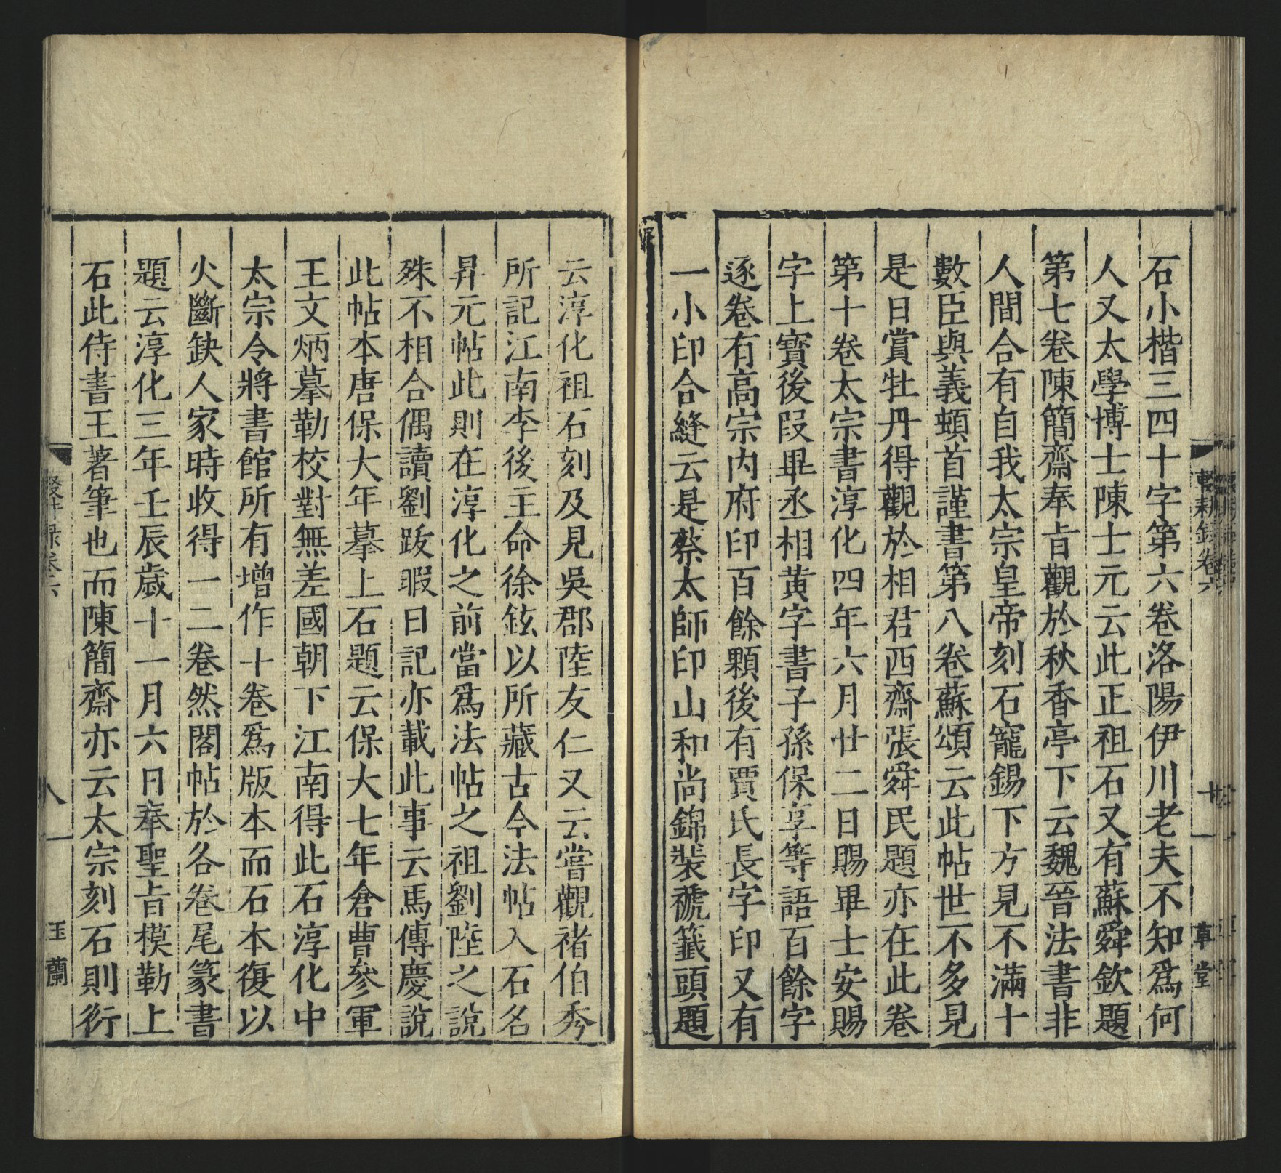 石小楷三四十字第六卷洛陽伊川老夫不知爲何
人又太學博士陳士元云此正祖石又有蘇舜欽題
第七卷陳簡齋奉旨觀於秋香亭下云魏晉法書非
人間合有自我太宗皇帝刻石寵錫下方見不滿十
數臣與義頓首謹書第八卷蘇頌云此帖世不多見
是日賞牡丹得觀於相君西齋張舜民題亦在此卷
第十卷太宗書淳化四年六月廿二日賜畢士安賜
字上寶後段畢丞相黄字書子孫保享等語百餘字
逐卷有高宗内府印百餘顆後有賈氏長字印又有
一小印合縫云是蔡太師印山和尚錦裝褫籤頭題
云淳化祖石刻及見吳郡陸友仁又云嘗觀褚伯秀
所記江南李後主命徐鉉以所藏古今法帖入石名
昇元帖此則在淳化之前當爲法帖之祖劉陸之說
殊不相合偶讀劉跂暇日記亦載此事云馬傳慶說
此帖本唐保大年摹上石題云保大七年倉曹參軍
王文炳摹勒校對無差國朝下江南得此石淳化中
太宗令將書館所有增作十卷爲版本而石本復以
火斷缺人家時收得一二卷然閣帖於各卷尾篆書
題云淳化三年壬辰歲十一月六日奉聖旨模勒上
石此侍書王著筆也而陳簡齋亦云太宗刻石則衍
輟耕錄卷六
草堂
輟耕錄卷六
玉蘭